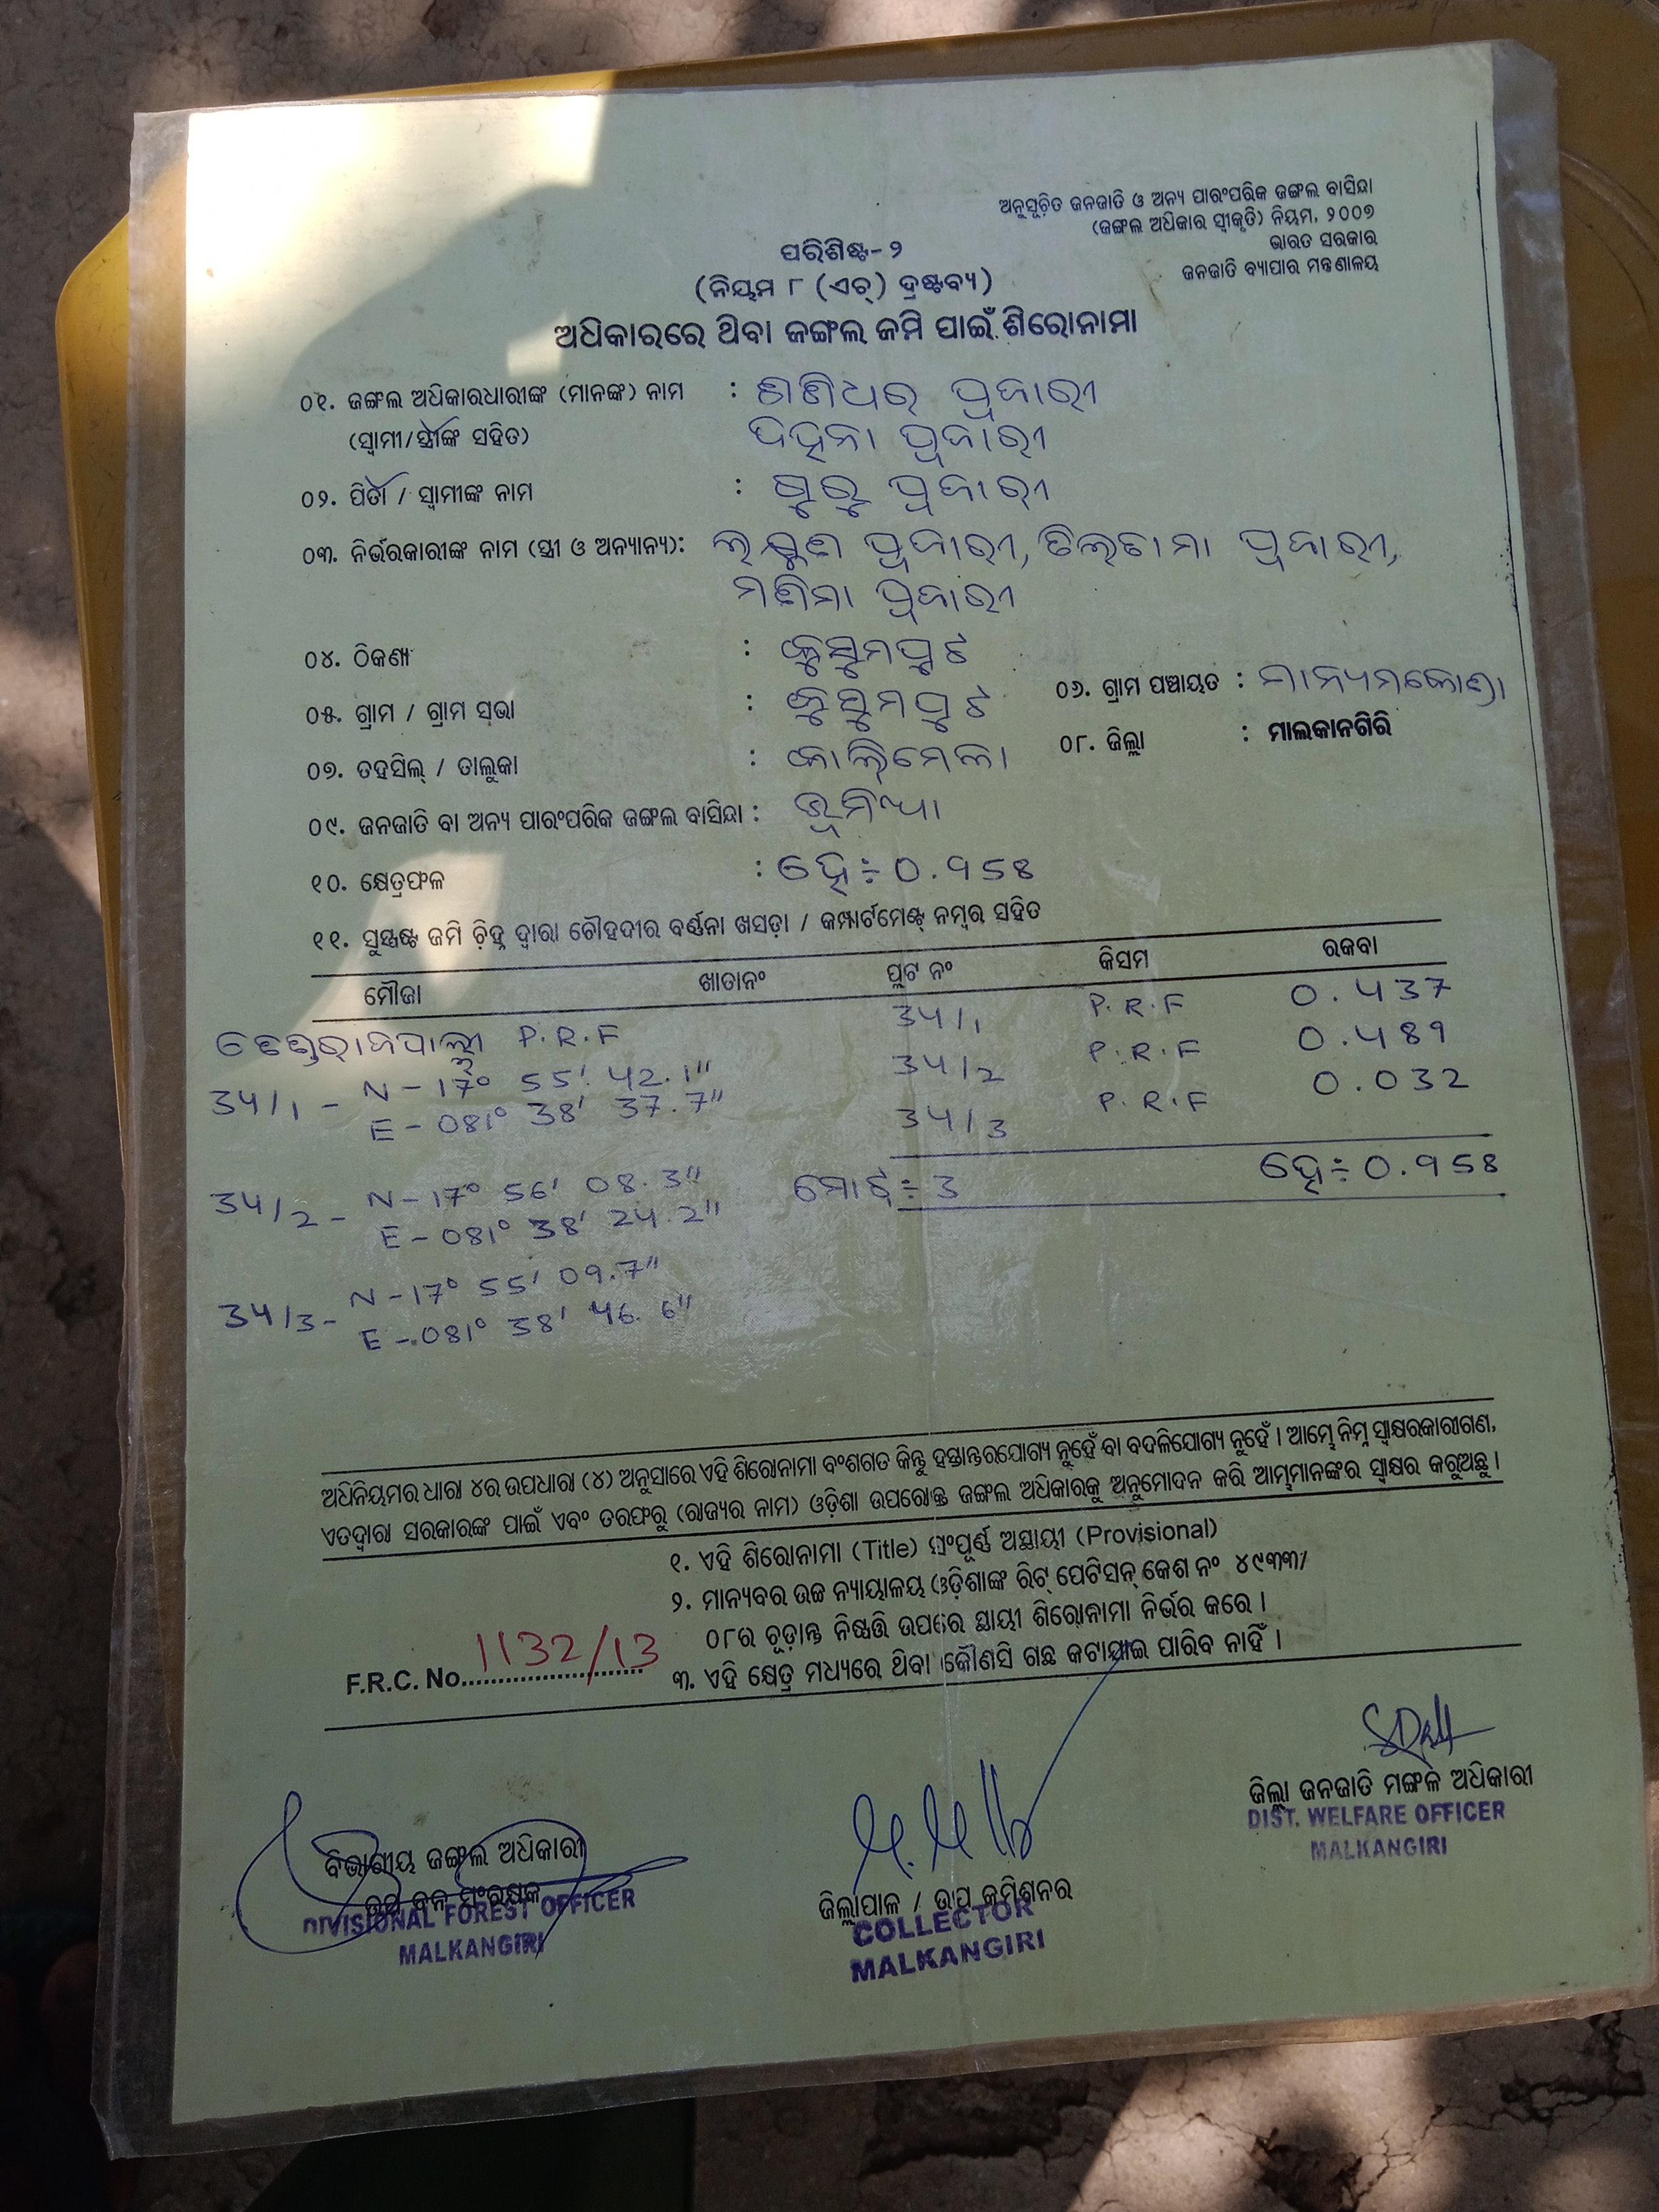 ଅନୁସୂଚିତ ଜନଜାତି ଓ ଅନ୍ୟ ପାରଂପରିକ ଜଙ୍ଗଲ ବାସିନ୍ଦା
(ଜଙ୍ଗଲ ଅଧିକାର ସ୍ୱୀକୃତି) ନିୟମ, ୨୦୦୭
ଭାରତ ସରକାର
ଜନଜାତି ବ୍ୟାପାର ମନ୍ତଣାଳୟ
ପରିଶିଷ୍ଟ-୨
(ନିୟମ ୮ (ଏଚ୍) ଦ୍ରଷ୍ଟବ୍ୟ)
ଅଧିକାରରେ ଥିବା ଜଙ୍ଗଲ ଜମି ପାଇଁ ଶିରୋନାମା
୦୧. ଜଙ୍ଗଲ ଅଧିକାରଧାରୀଙ୍କ (ମାନଙ୍କ) ନାମ : ଶଶିଧର ପୂଜାରୀ
(ସ୍ୱାମୀ/ସ୍ତ୍ରୀଙ୍କ ସହିତ) ପୂଜାରୀ
୦୨. ପିତା / ସ୍ୱାମୀଙ୍କ ନାମ : ଷୁରୁ ପୂଜାରୀ
୦୩. ନିର୍ଭରକାରୀଙ୍କ ନାମ (ସ୍ତ୍ରୀ ଓ ଅନ୍ୟାନ୍ୟ): ପୂଜାରୀ, ପୂଜାରୀ,
ପୂଜାରୀ
୦୪. ଠିକଣା : କୁସୁମପୁଟ
୦୫. ଗ୍ରାମ / ଗ୍ରାମ ସଭା : କୁସୁମପୁଟ ୦୬. ଗ୍ରାମ ପଞ୍ଚାୟତ : ମାନ୍ୟମକୋଣ୍ଡା
୦୭. ତହସିଲ୍ / ତାଲୁକା : କାଲିମେଲା ୦୮. ଜିଲ୍ଲା : ମାଲକାନଗିରି
୦୯. ଜନଜାତି ବା ଅନ୍ୟ ପାରଂପରିକ ଜଙ୍ଗଲ ବାସିନ୍ଦା : ଭୂମିଆ
୧୦. କ୍ଷେତ୍ରଫଳ : ହେ÷ 0.958
୧୧. ସୁସ୍ପଷ୍ଟ ଜମି ଚ଼ିହ୍ନ ଦ୍ୱାରା ଚୌହଦୀର ବର୍ଣ୍ଣନା ଖସଡ଼ା / କମ୍ପାର୍ଟମେଣ୍ଟ୍ ନମ୍ବର ସହିତ
ମୌଜା ଖାତାନଂ ପ୍ଲଟ ନଂ କିସମ ରକବା
P.R.F 34/1 P.R.F 0.437
34/1 - N - 17° 55' 42.1" 34/2 P.R.F 0.489
E - 081° 38' 37.7" 34/3 P.R.F 0.032
34/2 - N - 17° 56' 08.3" ମୋଟ÷ 3 ହେ÷ 0.958
E - 081° 38' 24.2"
34/3 - N - 17° 55' 09.7"
E - 081° 38' 46.6"
ଅଧିନିୟମର ଧାରା ୪ର ଉପଧାରା (୪) ଅନୁସାରେ ଏହି ଶିରୋନାମା ବଂଶଗତ କିନ୍ତୁ ହସ୍ତାନ୍ତରଯୋଗ୍ୟ ନୁହେଁ ବା ବଦଳିଯୋଗ୍ୟ ନୁହେଁ । ଆମ୍ଭେ ନିମ୍ନ ସ୍ୱାକ୍ଷରକାରୀଗଣ,
ଏତଦ୍ୱାରା ସରକାରଙ୍କ ପାଇଁ ଏବଂ ତରଫରୁ (ରାଜ୍ୟର ନାମ) ଓଡ଼ିଶା ଉପରୋକ୍ତ ଜଙ୍ଗଲ ଅଧିକାରକୁ ଅନୁମୋଦନ କରି ଆମ୍ଭମାନଙ୍କର ସ୍ୱାକ୍ଷର କରୁଅଛୁ ।
୧. ଏହି ଶିରୋନାମା (Title) ସଂପୂର୍ଣ୍ଣ ଅସ୍ଥାୟୀ (Provisional)
୨. ମାନ୍ୟବର ଉଚ୍ଚ ନ୍ୟାୟାଳୟ ଓଡ଼ିଶାଙ୍କ ରିଟ୍ ପେଟିସନ୍ କେଶ ନଂ ୪୯୩୩/
୦୮ର ଚୂଡ଼ାନ୍ତ ନିଷ୍ପତ୍ତି ଉପରେ ସ୍ଥାୟୀ ଶିରୋନାମା ନିର୍ଭର କରେ ।
F.R.C. No. 1132/13 ୩. ଏହି କ୍ଷେତ୍ର ମଧ୍ୟରେ ଥିବା କୌଣସି ଗଛ କଟାଯାଇ ପାରିବ ନାହିଁ ।
ଜିଲ୍ଲା ଜନଜାତି ମଙ୍ଗଳ ଅଧିକାରୀ
DIST. WELFARE OFFICER
MALKANGIRI
ବିଭାଗୀୟ ଜଙ୍ଗଲ ଅଧିକାରୀ
ଉପ ବନ ସଂରକ୍ଷକ
DIVISIONAL FOREST OFFICER
MALKANGIRI
ଜିଲ୍ଲାପାଳ / ଉପ କମିଶନର
COLLECTOR
MALKANGIRI